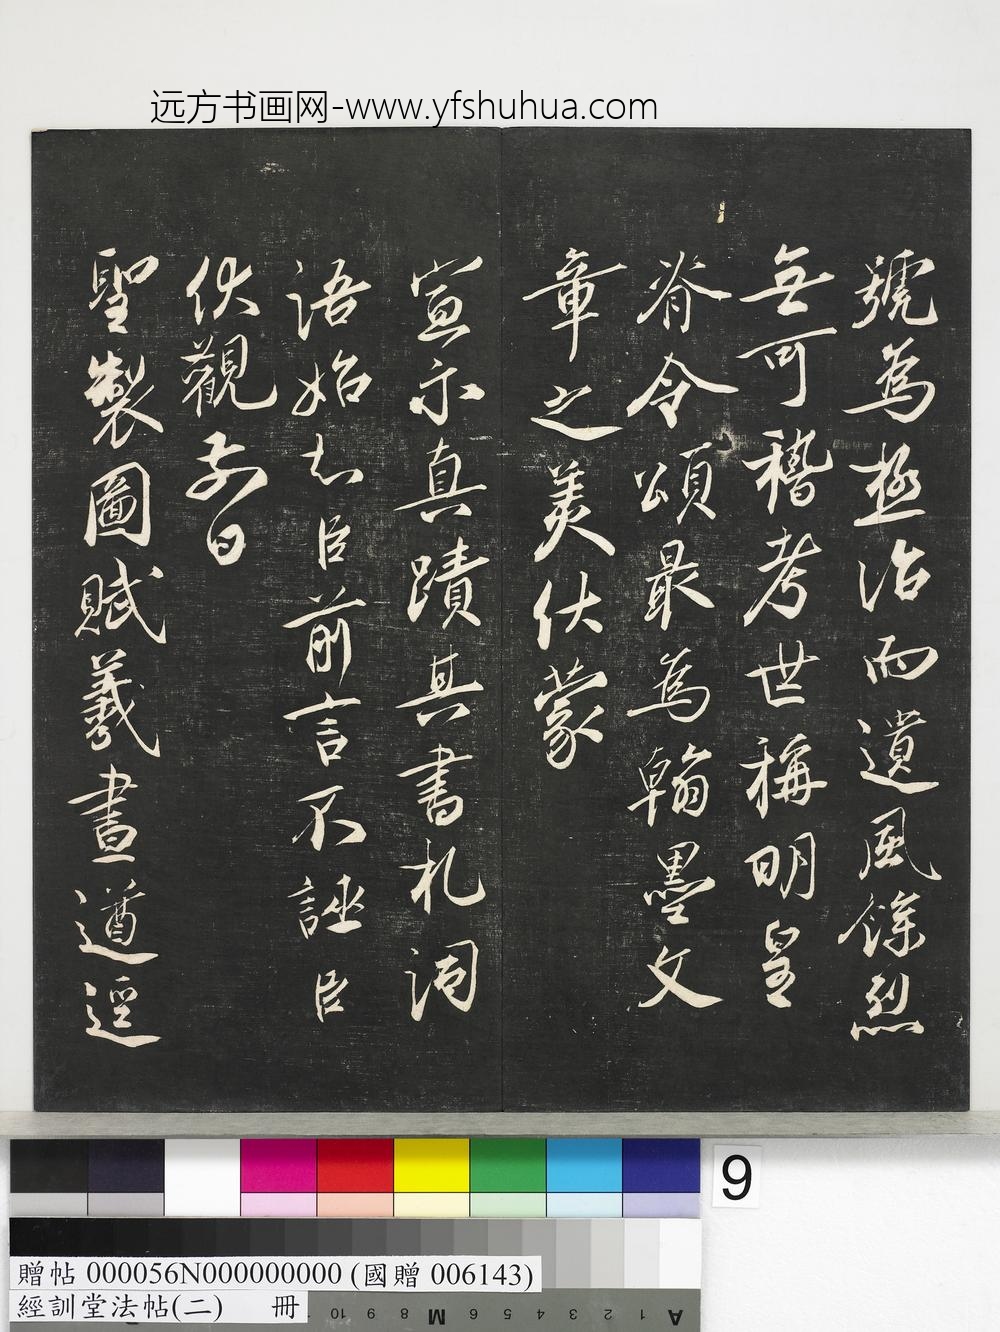 远方书画网-www.yfshuhua.com
號為極治而遺風餘烈
無可稽考世稱明皇
脊令頌最為翰墨文
章之美伏蒙
宣示真蹟其書札詞
語始知臣前言不誣臣
伏觀前日
聖製圖賦羲畫遒逕
9
贈帖 000056N000000000 (國贈 006143)
經訓堂法帖(二) 冊
10 9 8 M 6 5 4 3 2 1 A